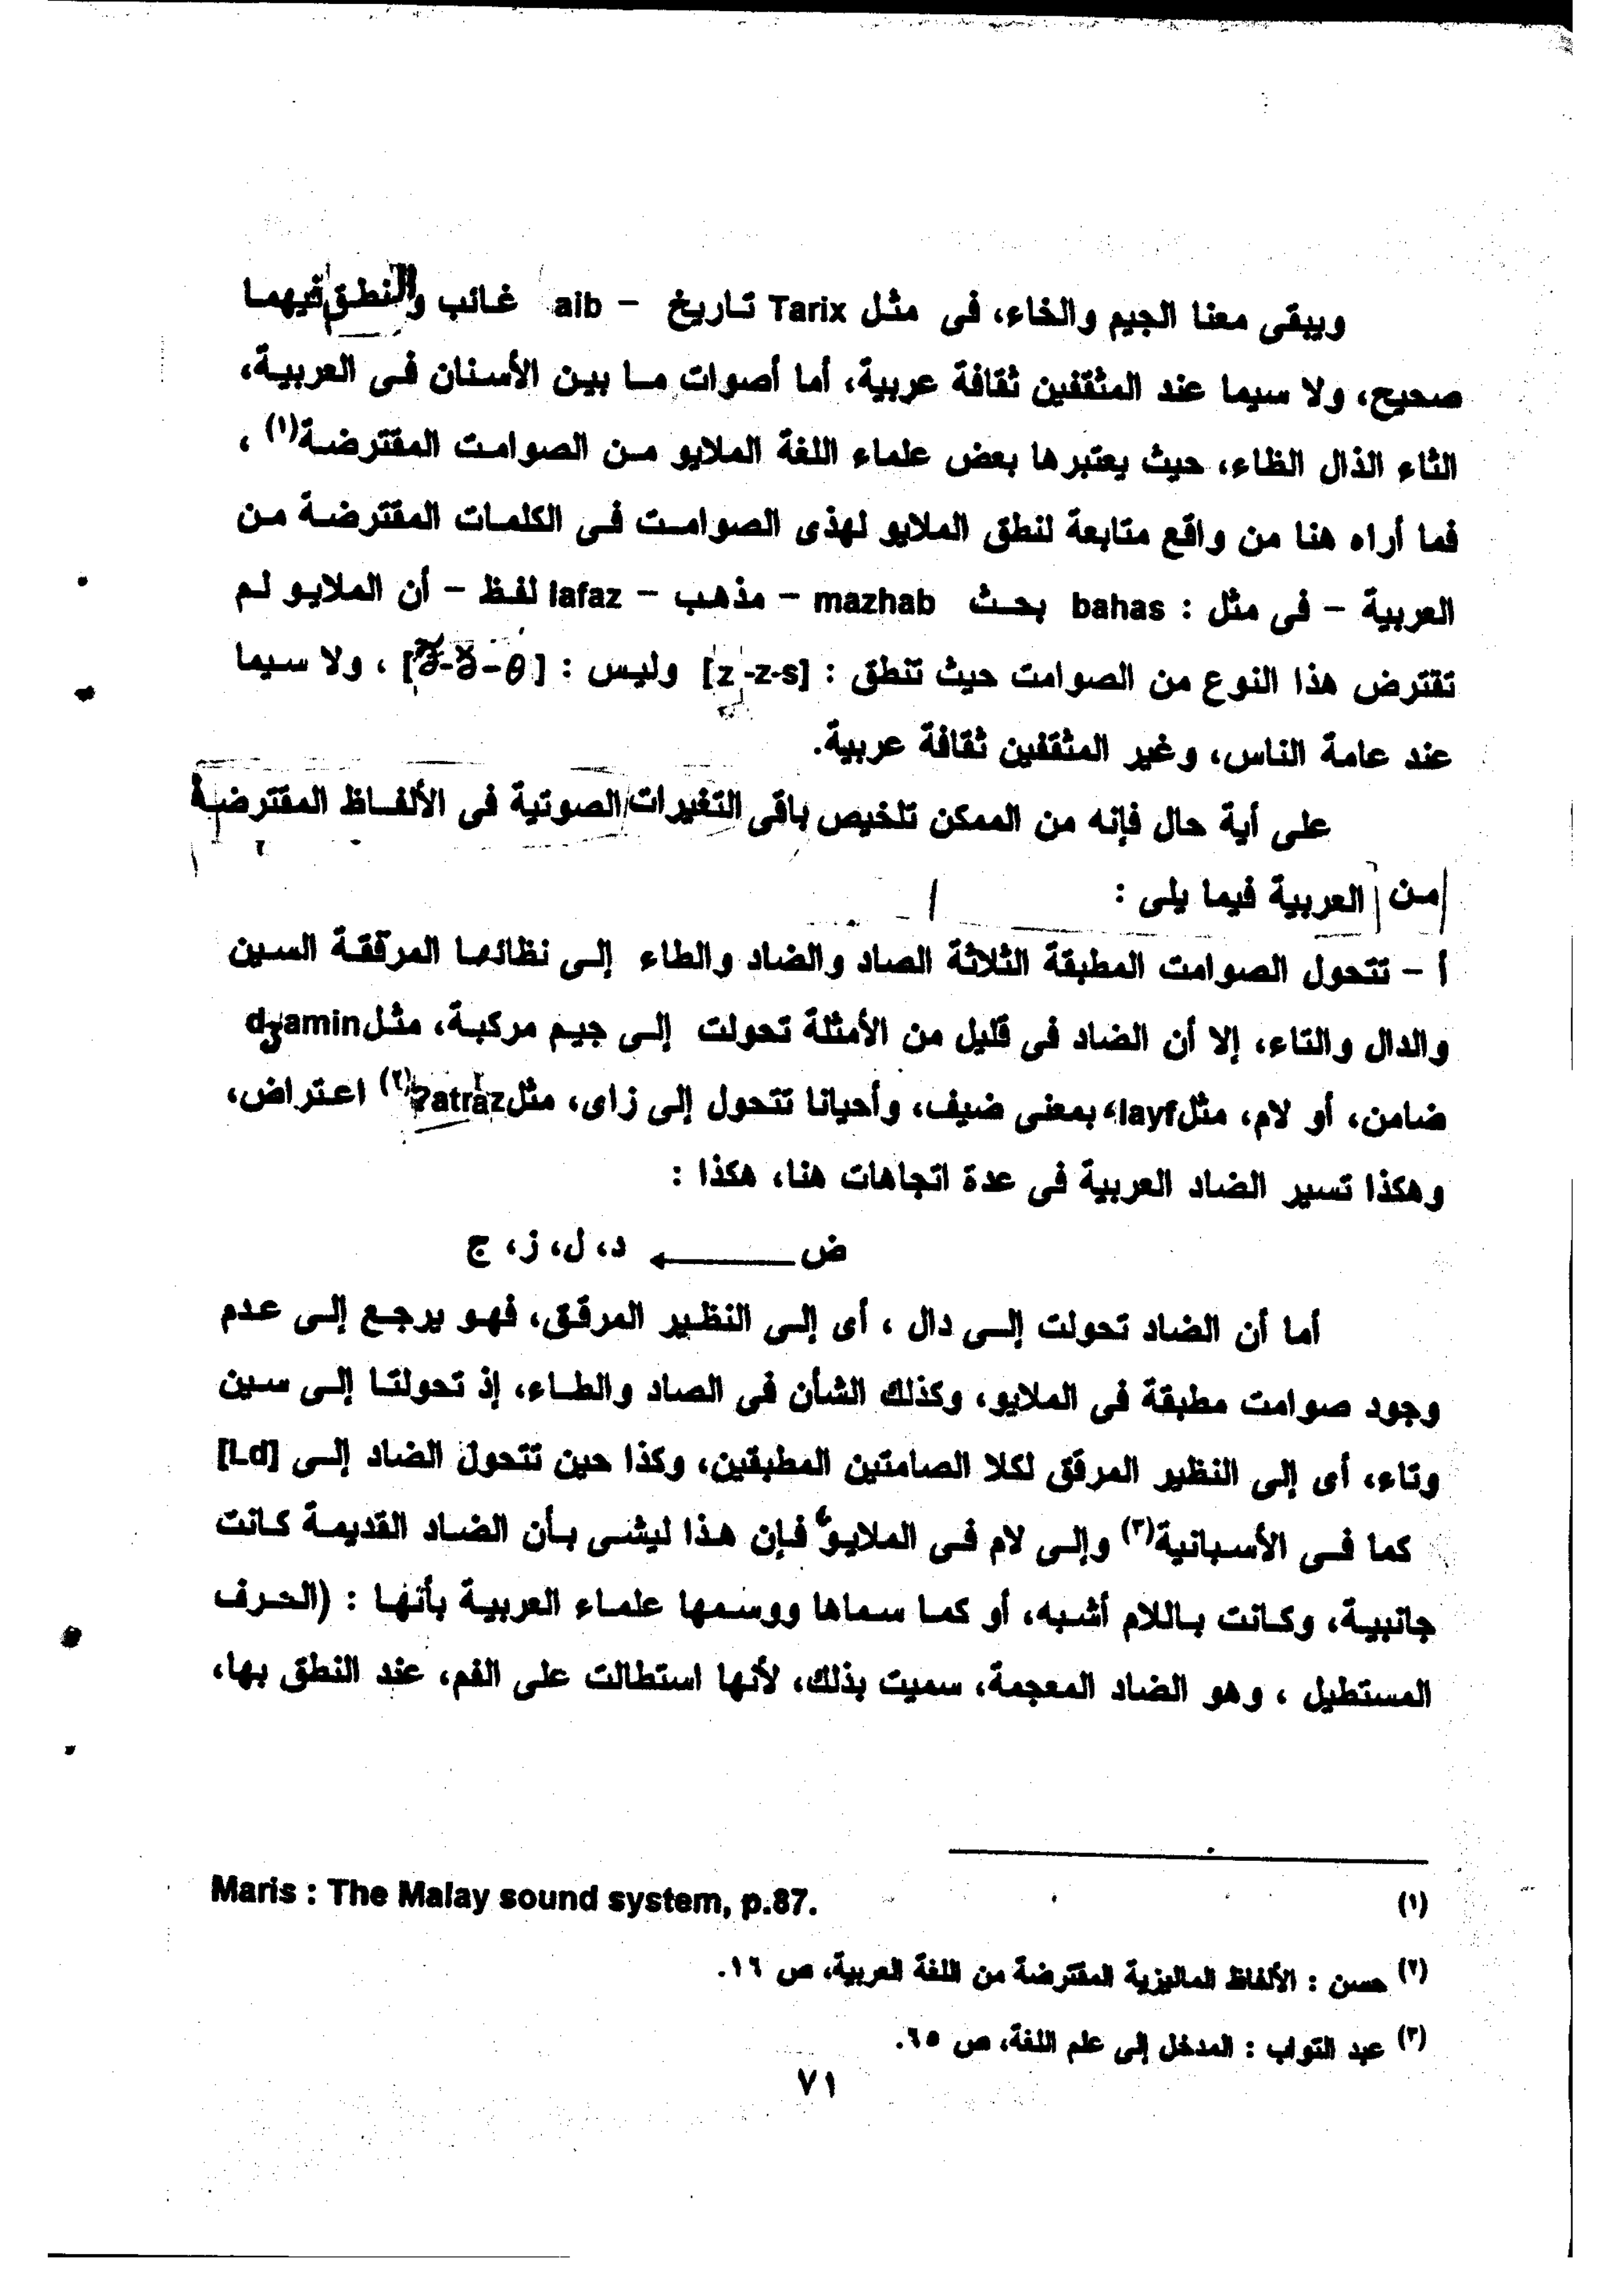 ويبقى معنا الجيم والخاء، فى مثل Tarix تاريخ – aib غائب والنطق فيهما
صحيح، ولا سيما عند المثقفين ثقافة عربية، أما أصوات ما بين الأسنان فى العربية،
الثاء الذال الظاء، حيث يعتبرها بعض علماء اللغة الملايو من الصوامت المقترضة(١) ،
فما أراه هنا من واقع متابعة لنطق الملايو لهذى الصوامت فى الكلمات المقترضة من
العربية – فى مثل : bahas بحث mazhab – مذهب – lafaz لفظ – أن الملايو لم
تقترض هذا النوع من الصوامت حيث تنطق : [z -z-s] وليس : ، ولا سيما
عند عامة الناس، وغير المثقفين ثقافة عربية.
على أية حال فإنه من الممكن تلخيص باقى التغيرات الصوتية فى الألفاظ المقترضة
من العربية فيما يلى :
أ – تتحول الصوامت المطبقة الثلاثة الصاد والضاد والطاء إلى نظائها المرققة السين
والدال والتاء، إلا أن الضاد فى قليل من الأمثلة تحولت إلى جيم مركبة، مثل dʒamin
ضامن، أو لام، مثل layf، بمعنى ضيف، وأحيانا تتحول إلى زاى، مثل ʔatraz(٢) اعتراض،
وهكذا تسير الضاد العربية فى عدة اتجاهات هنا، هكذا :
ض ← د، ل، ز، ج
أما أن الضاد تحولت إلى دال ، أى إلى النظير المرقق، فهو يرجع إلى عدم
وجود صوامت مطبقة فى الملايو، وكذلك الشأن فى الصاد والطاء، إذ تحولتا إلى سين
وتاء، أى إلى النظير المرقق لكلا الصامتين المطبقين، وكذا حين تتحول الضاد إلى [Ld]
كما فى الأسبانية(٣) وإلى لام فى الملايو، فإن هذا ليشى بأن الضاد القديمة كانت
جانبية، وكانت باللام أشبه، أو كما سماها ووسمها علماء العربية بأنها : (الحرف
المستطيل ، وهو الضاد المعجمة، سميت بذلك، لأنها استطالت على الفم، عند النطق بها،
(١) Maris : The Malay sound system, p.87.
(٢) حسن : الألفاظ الماليزية المقترضة من اللغة العربية، ص ١٦.
(٣) عبد التواب : المدخل إلى علم اللغة، ص ٦٥.
٧١